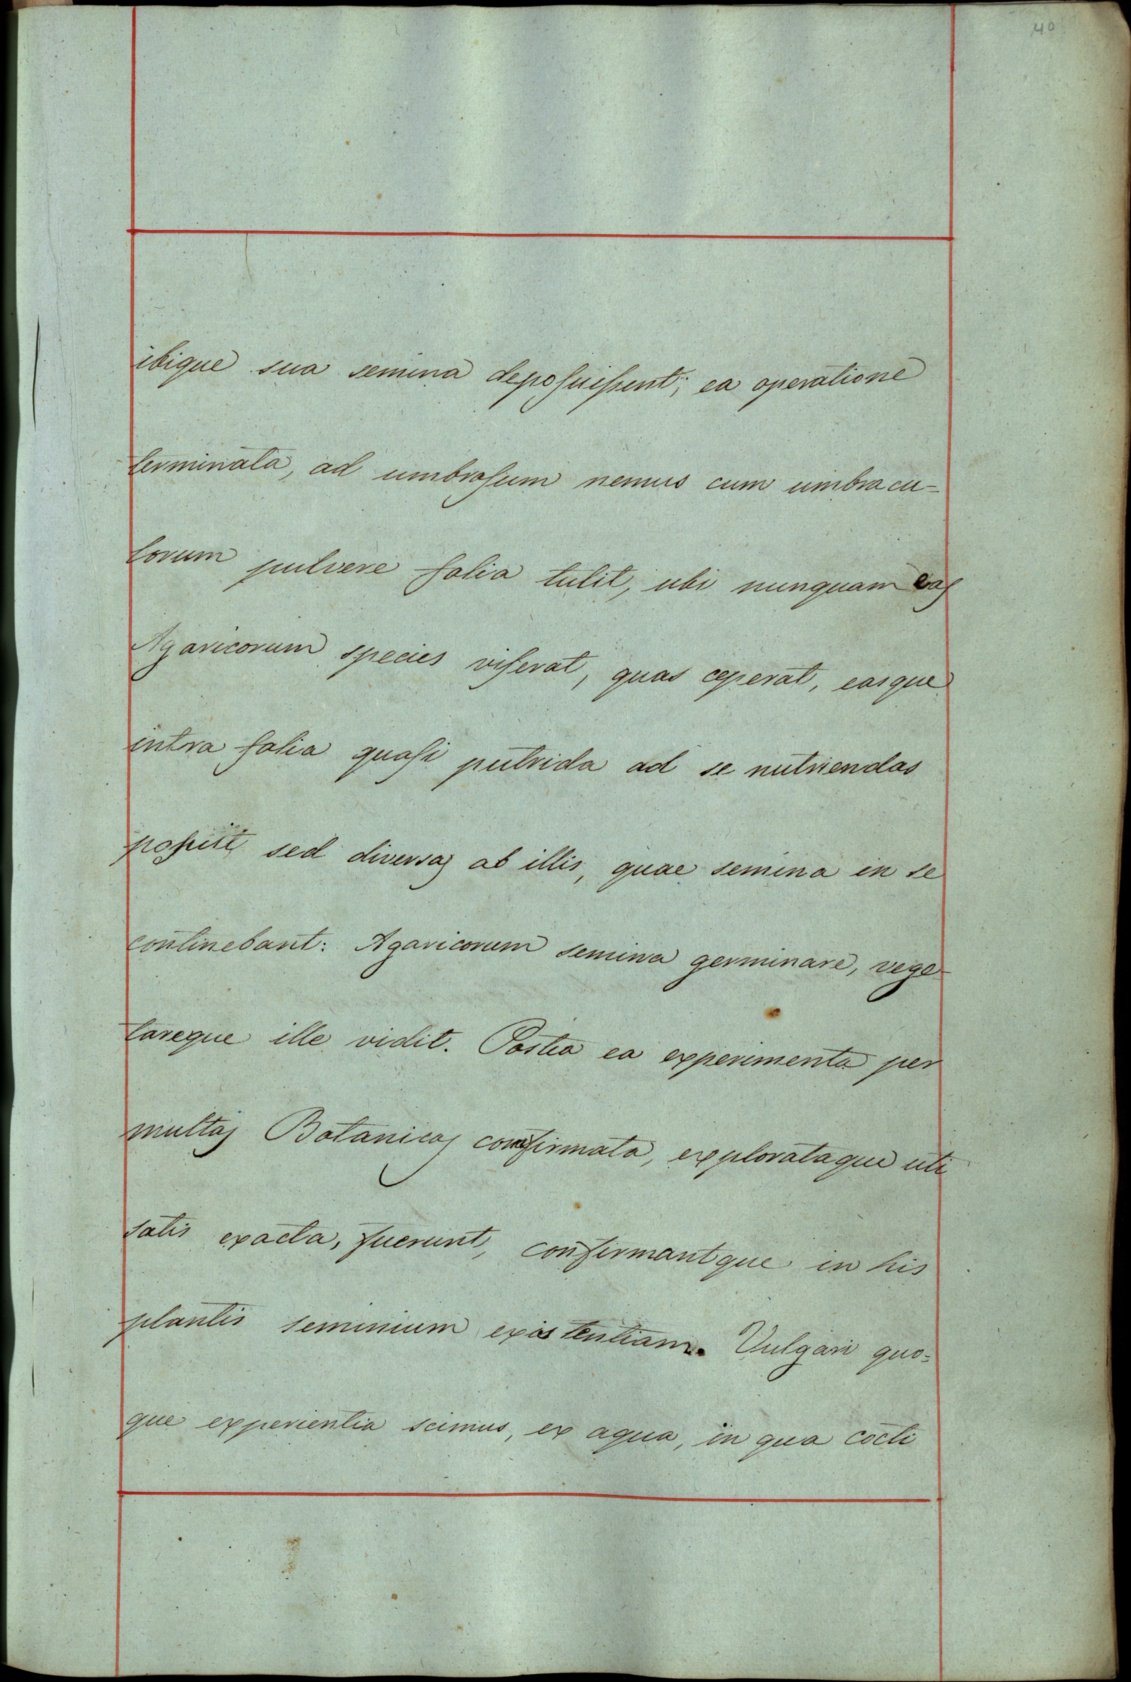 40
ibique sua semina deposuissent; ea operatione
terminata, ad umbrosum nemus cum umbracu-
lorum pulvere folia tulit, ubi nunquam eas
Agaricorum species viserat, quas ceperat, easque
intra folia quasi putrida ad se nutriendas
posuit, sed diversas ab illis, quae semina in se
continebant: Agaricorum semina germinare, vege-
tareque ille vidit. Postea ea experimenta per
multas Botanicas confirmata, explorataque uti
satis exacta, fuerunt, confirmantque in his
plantis seminium existentiam. Vulgari quo-
que experientia scimus, ex aqua, in qua cocti